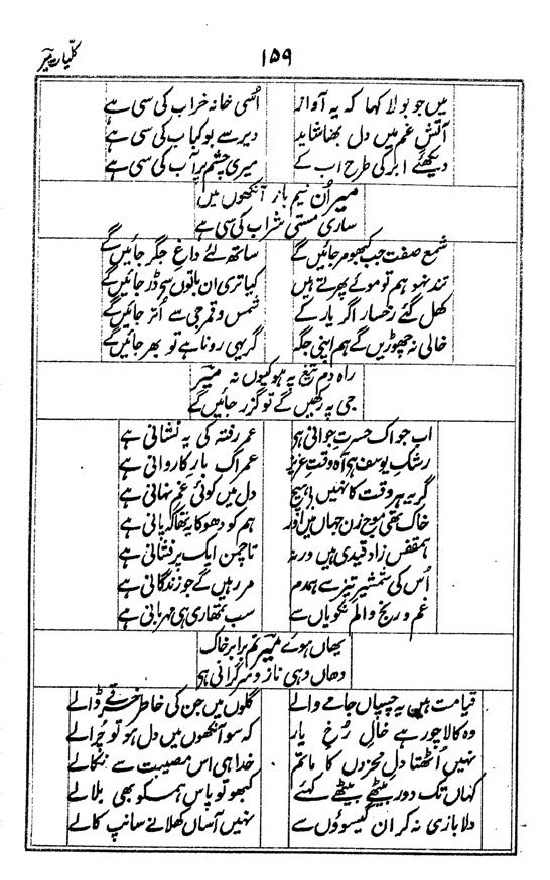 کلیات میر
۱۵۹
میں جو بولا کہا کہ یہ آواز اسی خانہ خراب کی سی ہے
آتش غم میں دل بھنا شاید دیر سے بو کباب کی سی ہے
دیکھئے ابر کی طرح اب کے میری چشم پر آب کی سی ہے
میر ان نیم باز آنکھوں میں
ساری مستی شراب کی سی ہے
شمع صفت جب کبھو مر جائیں گے ساتھ لئے داغ جگر جائیں گے
تند نہو ہم تو موئے پھرتے ہیں کیا تری ان باتوں سے ڈر جائیں گے
کھل گئے رخسار اگر یار کے شمس و قمر جی سے اتر جائیں گے
خالی نہ چھوڑیں گے ہم اپنی جگہ گر یہی رونا ہے تو بھر جائیں گے
راہ دم تیغ پہ ہو کیوں نہ میر
جی پہ رکھیں گے تو گزر جائیں گے
اب جو اک حسرت جوانی ہی عمر رفتہ کی یہ نشانی ہے
رشک یوسف ہی آہ وقت عزیز عمر اک بار کاروانی ہے
گریہ ہر وقت کا نہیں با ہیچ دل میں کوئی غم نہانی ہے
خاک تھی موج زن جہاں میں اور ہم کو دھوکا یہ تھا کہ پانی ہے
ہمقفس زاد قیدی ہیں ورنہ تا چمن ایک پر فشانی ہے
اس کی شمشیر تیز سے ہمدم مر رہیں گے جو زندگانی ہے
غم و رنج و الم نکویاں سے سب تمھاری ہی مہربانی ہے
یھاں ہوئے میر تم برابر خاک
وھاں وہی ناز و سر گرانی ہی
قیامت ہیں یہ چسپاں جامے والے گلوں میں جن کی خاطر خرقے ڈالے
وہ کالا چور ہے خال رخ یار کہ سو آنکھوں میں دل ہو تو چرالے
نہیں اٹھتا دل محزوں کا ماتم خدا ہی اس مصیبت سے نکالے
کہاں تک دور بیٹھے بیٹھے کہئے کبھو تو پاس ہم کو بھی بلا لے
دلا بازی نہ کر ان گیسوؤں سے نہیں آساں کھلانے سانپ کالے